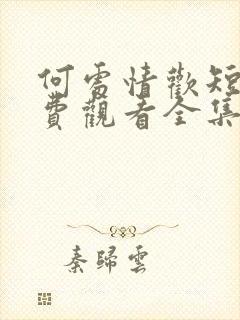 何處情歡短
費觀看全集
秦歸雲